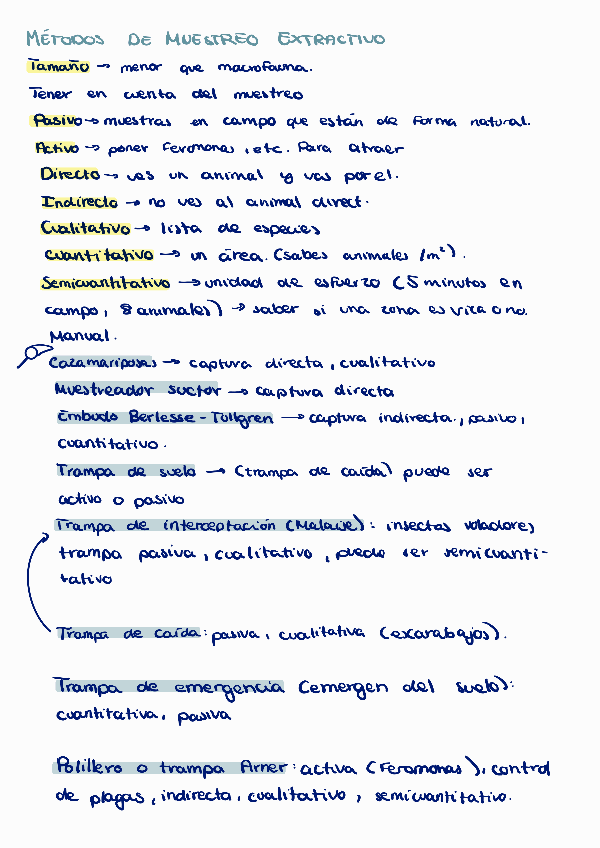 MÉTODOS DE MUESTREO EXTRACTIVO
Tamaño → menor que macrofauna.
Tener en cuenta del muestreo
Pasivo → muestras en campo que están de forma natural.
Activo → poner feromonas, etc. Para atraer
Directo → ves un animal y vas por el.
Indirecto → no ves al animal direct.
Cualitativo → lista de especies
Cuantitativo → un área. (sabes animales /m²).
Semicuantitativo → unidad de esfuerzo (5 minutos en
campo, 8 animales) → saber si una zona es vica o no.
Manual.
Cazamariposas → captura directa, cualitativo
Muestreador suctor → captura directa
Embudo Berlesse - Tüllgren → captura indirecta, pasivo,
cuantitativo.
Trampa de suelo → (trampa de caída) puede ser
activo o pasivo
Trampa de interceptación (Malaise): insectos voladores,
trampa pasiva, cualitativo, puede ser semicuanti-
tativo
Trampa de caída: pasiva, cualitativa (escarabajos).
Trampa de emergencia (emergen del suelo):
cuantitativa, pasiva
Polillero o trampa Arner: activa (feromonas), control
de plagas, indirecta, cualitativo, semicuantitativo.